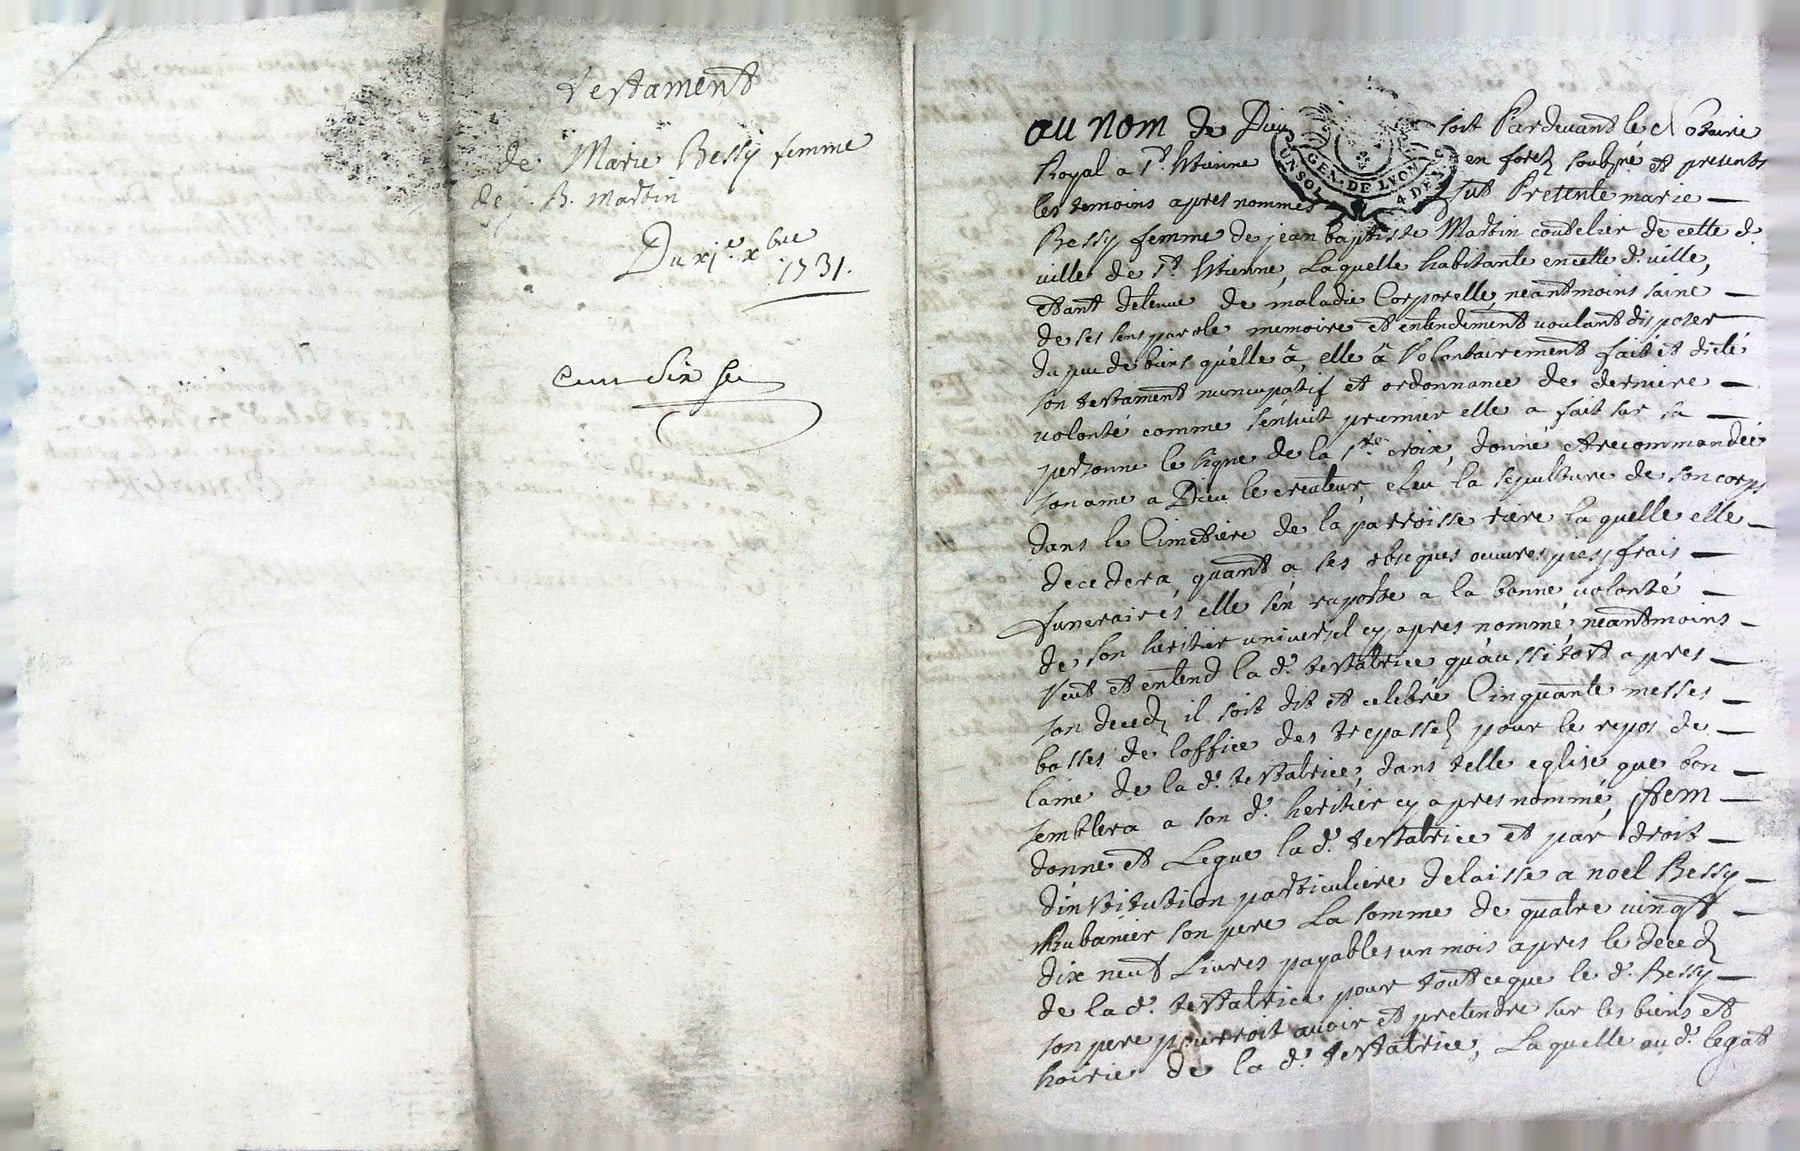 Testament
de Marie Bessy femme
de J. B. Martin
Du xj.e xbre
1731.
au nom de Dieu soit Pardevant le Notaire
Royal a St. Etienne en forez soubzné et presents
les temoins apres nommés fut Presente marie
Bessy femme de jean baptiste Martin coutelier de cette d.
ville de St. Etienne, Laquelle habitante encette d. ville,
etant detenue de maladie Corporelle, neantmoins saine
de ses sens parole memoire et entendement voulant disposer
du peu de biens qu'elle â, elle â Volontairement fait et dicté
son testament nuncupatif et ordonnance de derniere
volonté comme s'ensuit premier elle a fait sur sa
personne le signe de la Ste. croix, donné et recommandée
son ame a Dieu le createur, eleu la sepulture de son corps
dans le Cimetiere de la parroisse riere laquelle elle
decedera, quant a ses obseques œuvres pies frais
funeraires elle s'en raporte a la bonne volonté
de son heritier universel cy apres nommé, neantmoins
Veut et entend la d. testatrice qu'aussitost apres
son decedz il soit dit et celebré Cinquante messes
basses de loffice des trepassez pour le repos de
lame de la d. testatrice, dans telle eglise que bon
semblera a son d. heritier cy apres nommé, Item
donne et Legue la d. testatrice et par droit
d'institution particuliere delaisse a noel Bessy
Rubanier son pere La somme de quatre vingt
dix neuf Livres payables un mois apres le decedz
de la d. testatrice pour tout ce que le d. Bessy
son pere pourroit avoir et pretendre sur les biens et
hoirie de la d. testatrice, Laquelle au d. legat
GEN. DE LYON
UN SOL 4 DEN.